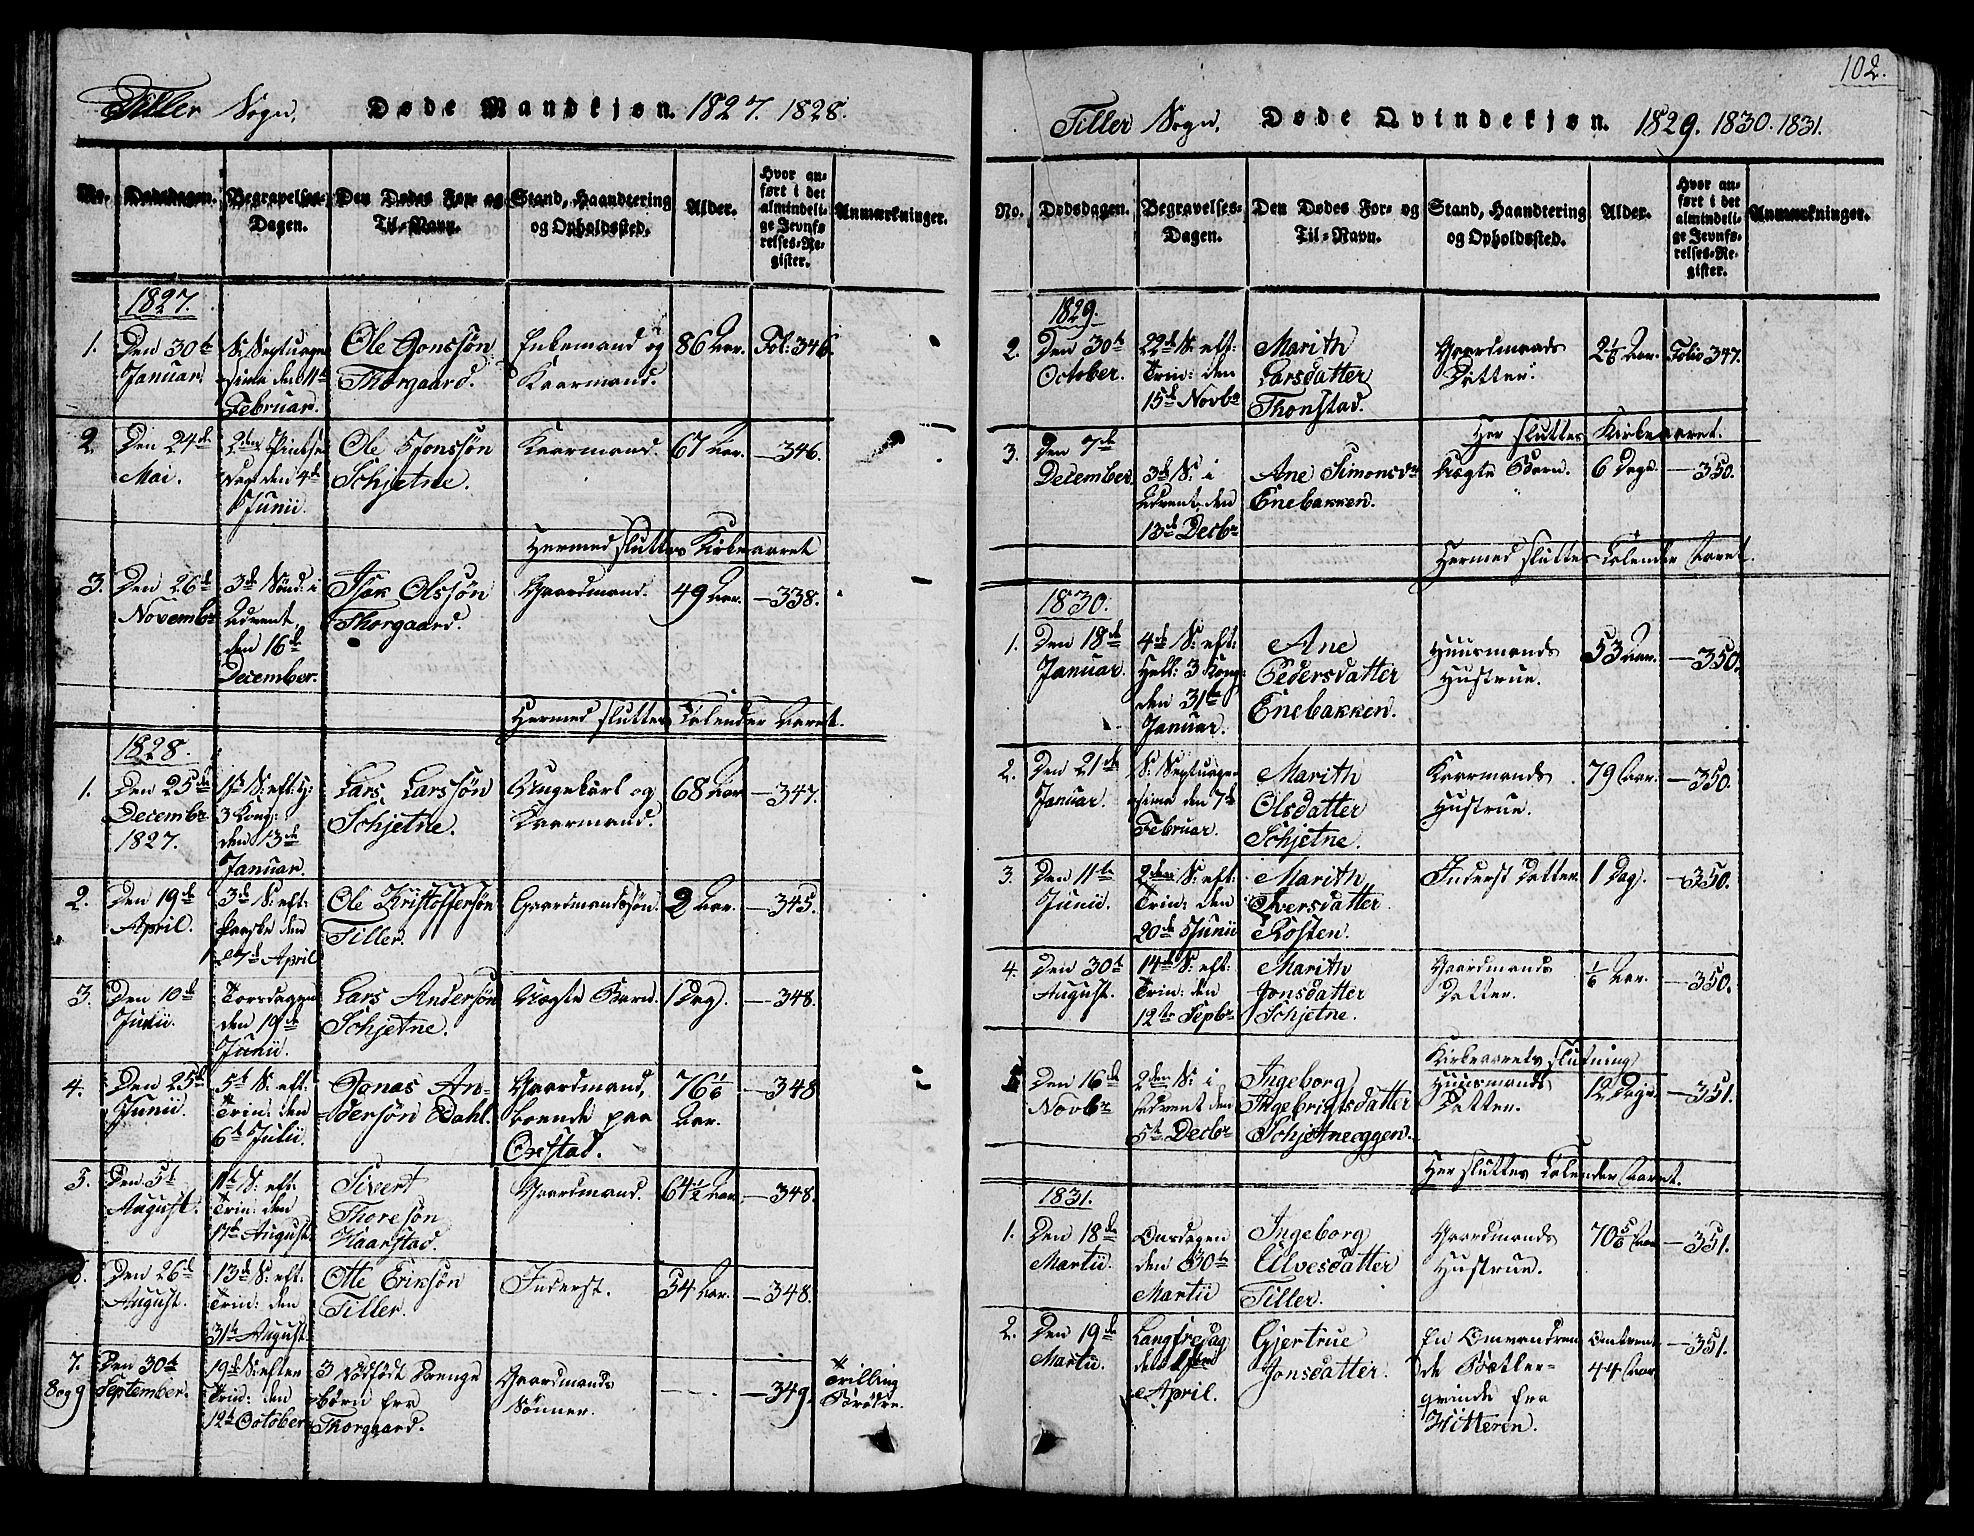 Tiller Sogn. Døde Mandkjøn. 1827. 1828.
No. Dødsdagen. Begravelses-Dagen. Den Dødes For- og Til-Navn. Stand, Haandtering og Opholdssted. Alder. Hvor anført i det almindelige Jevnførelses-Register. Anmærkninger.
1827.
1. Den 30te Januar. S: Septuagesima den 11te Februar. Ole Jonssøn Thorgaard. Enkemand og Kaarmand. 86 Aar. Fol: 346.
2. Den 24de Mai. 2den Pintsedag den 4de Junii. Ole Jonssøn Schjetne. Kaarmand. 67 Aar. —346.
Hermed sluttes Kirkeaaret
3. Den 26de Novembr 3de Sønd: i Advent, den 16de December. Isak Olssøn Thorgaard. Gaardmand. 49 Aar. —338.
Hermed sluttes Calender Aaret.
1828.
1. Den 25de Decembr 1827. 1ste S: eft: H: 3 Kong: den 13de Januar. Lars Larssøn Schjetne. Ungekarl og Kaarmand. 68 Aar —347.
2. Den 19de April. 3de S: eft: Paaske den 27de April Ole Kristoffersøn Tiller. Gaardmandssøn. 2 Aar. —345.
3. Den 10de Junii. Torsdagen den 19de Junii. Lars Andersøn Schjetne. Uægte Barn. 1 Dag. —348.
4. Den 25de Junii. 5te S: eft: Trin: den 6te Julii. Jonas Andersøn Dahl. Gaardmand, boende paa Orestad. 76 1/6 Aar. —348
5. Den 5te August. 11te S: eft: Trin: den 17de August. Sivert Thoresøn Kaarstad. Gaardmand. 64 1/2 Aar. —348.
6. Den 26de August. 13de S: eft: Trin: den 31te August. Otte Eriksøn Tiller. Inderst. 54 Aar. —348.
7. 8 og 9 Den 30te September. 19de S: efter Trin: den 12te October 3 dødfødt Drengebørn fra Thorgaard. Gaardmands Sønner. —349. Trilling Brødre.
102.
Tiller Sogn. Døde Qvindekjøn. 1829. 1830. 1831.
No. Dødsdagen. Begravelses-Dagen. Den Dødes For- og Til-Navn. Stand, Haandtering og Opholdssted. Alder. Hvor anført i det almindelige Jevnførelses-Register. Anmærkninger.
1829.
2. Den 30te October. 22de S: eft: Trin: den 15de Novbr Marith Larsdatter Thonstad. Gaardmands Datter. 2 1/6 Aar. Folio 347.
Her sluttes Kirkeaaret.
3. Den 7de December. 3de S: i Advent, den 13de Decbr Ane Simonsdr Enebakken. Uægte Barn. 6 Dage. —350.
Hermed sluttes Calender Aaret.
1830.
1. Den 18de Januar. 4de S: eft: Hell: 3 Kong: den 31te Januar. Ane Pedersdatter Enebakken. Huusmands Hustrue. 53 Aar. —350.
2. Den 21de Januar. S: Septuagesima den 7de Februar. Marith Olsdatter Schjetne. Kaarmands Hustrue. 79 Aar. —350.
3. Den 11te Junii. 2den S: eft: Trin: den 20de Junii Marith Iversdatter Rosten. Inderst Datter. 1 Dag. —350.
4. Den 30te August. 14de S: eft: Trin: den 12te Sepbr Marith Jonsdatter Schjetne. Gaardmands Datter. 1/6 Aar. —350.
Kirkeaarets Slutning
5 Den 16de Novbr 2den S: i Advent den 5te Decbr Ingeborg Ingebrigtsdatter Schjetneeggen. Huusmands Datter. 12 Dage. —351.
Her sluttes Calender Aaret.
1831.
1. Den 18de Martii. Onsdagen den 30te Martii Ingeborg Ulvesdatter Tiller. Gaardmands Hustrue. 70 5/6 Aar —351.
2. Den 19de Martii. Langfredag den 1ste April. Gjertrue Jonsdatter. En Omvandrende Betlerqvinde fra Hitteren. Omtrent 44 Aar. —351.